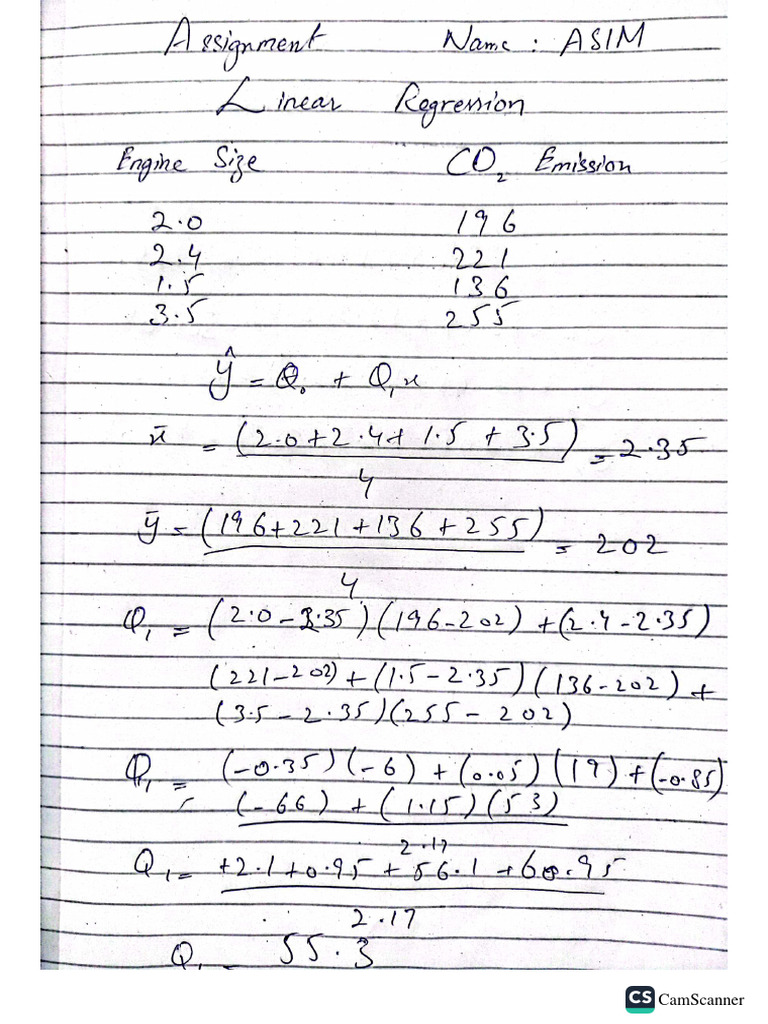 Assignment Name : ASIM
Linear Regression
Engine Size CO₂ Emission
2.0 196
2.4 221
1.5 136
3.5 255
ŷ = Q₀ + Q₁x
x̄ = (2.0+2.4+1.5+3.5) = 2.35
4
ȳ = (196+221+136+255) = 202
4
Q₁ = (2.0-2.35)(196-202)+(2.4-2.35)
(221-202)+(1.5-2.35)(136-202)+
(3.5-2.35)(255-202)
Q₁ = (-0.35)(-6)+(0.05)(19)+(-0.85)
(-66)+(1.15)(53)
2.17
Q₁ = +2.1+0.95+56.1+60.95
2.17
Q₁ = 55.3
CS CamScanner